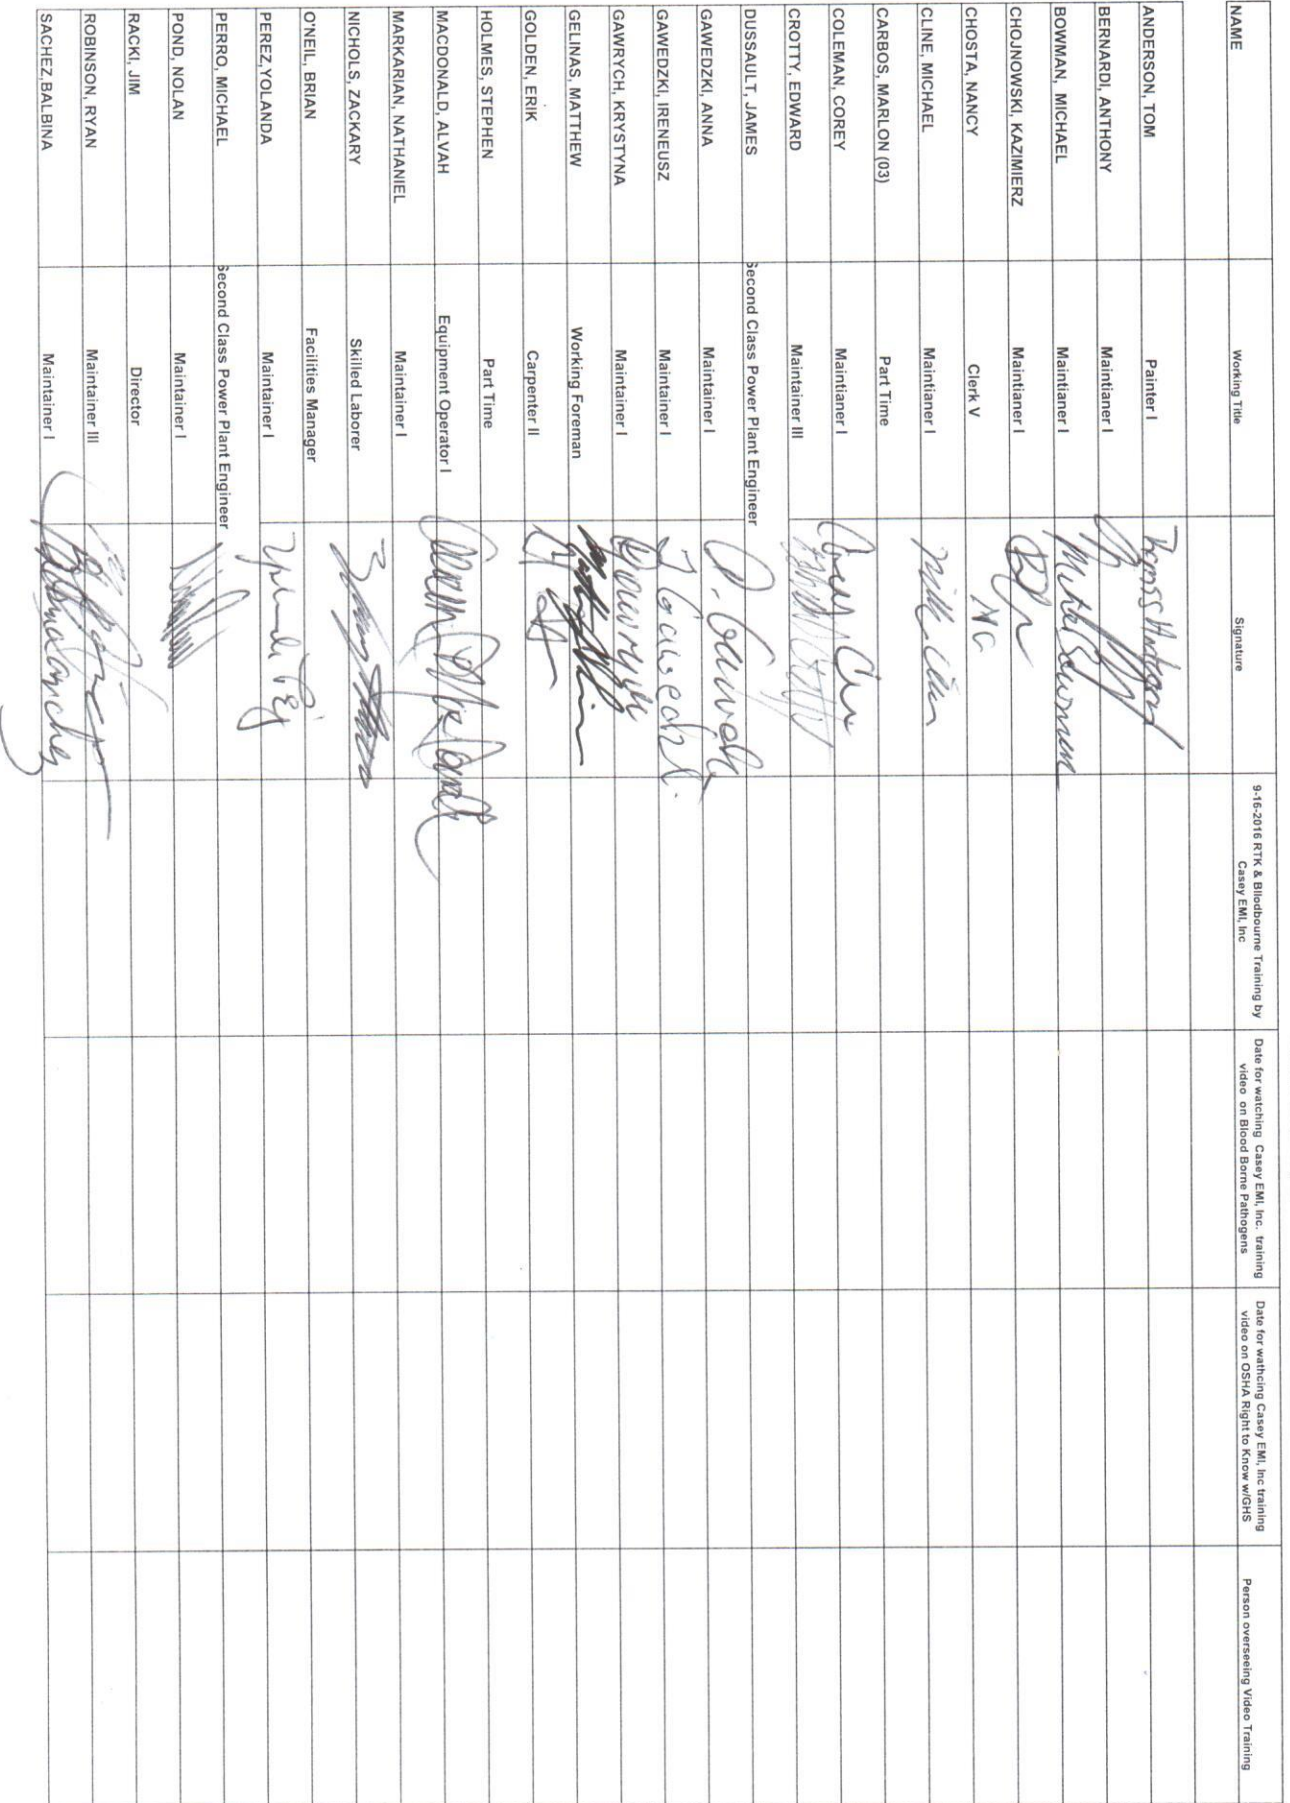 NAME Working Title Signature 9-16-2016 RTK & Bllodbourne Training by Casey EMI, Inc Date for watching Casey EMI, Inc. training video on Blood Borne Pathogens Date for wathcing Casey EMI, Inc training video on OSHA Right to Know w/GHS Person overseeing Video Training
ANDERSON, TOM Painter I
BERNARDI, ANTHONY Maintianer I
BOWMAN, MICHAEL Maintianer I
CHOJNOWSKI, KAZIMIERZ Maintianer I
CHOSTA, NANCY Clerk V
CLINE, MICHAEL Maintianer I
CARBOS, MARLON (03) Part Time
COLEMAN, COREY Maintianer I
CROTTY, EDWARD Maintainer III
DUSSAULT, JAMES Second Class Power Plant Engineer
GAWEDZKI, ANNA Maintainer I
GAWEDZKI, IRENEUSZ Maintainer I
GAWRYCH, KRYSTYNA Maintainer I
GELINAS, MATTHEW Working Foreman
GOLDEN, ERIK Carpenter II
HOLMES, STEPHEN Part Time
MACDONALD, ALVAH Equipment Operator I
MARKARIAN, NATHANIEL Maintainer I
NICHOLS, ZACKARY Skilled Laborer
O'NEIL, BRIAN Facilities Manager
PEREZ,YOLANDA Maintainer I
PERRO, MICHAEL Second Class Power Plant Engineer
POND, NOLAN Maintainer I
RACKI, JIM Director
ROBINSON, RYAN Maintainer III
SACHEZ,BALBINA Maintainer I